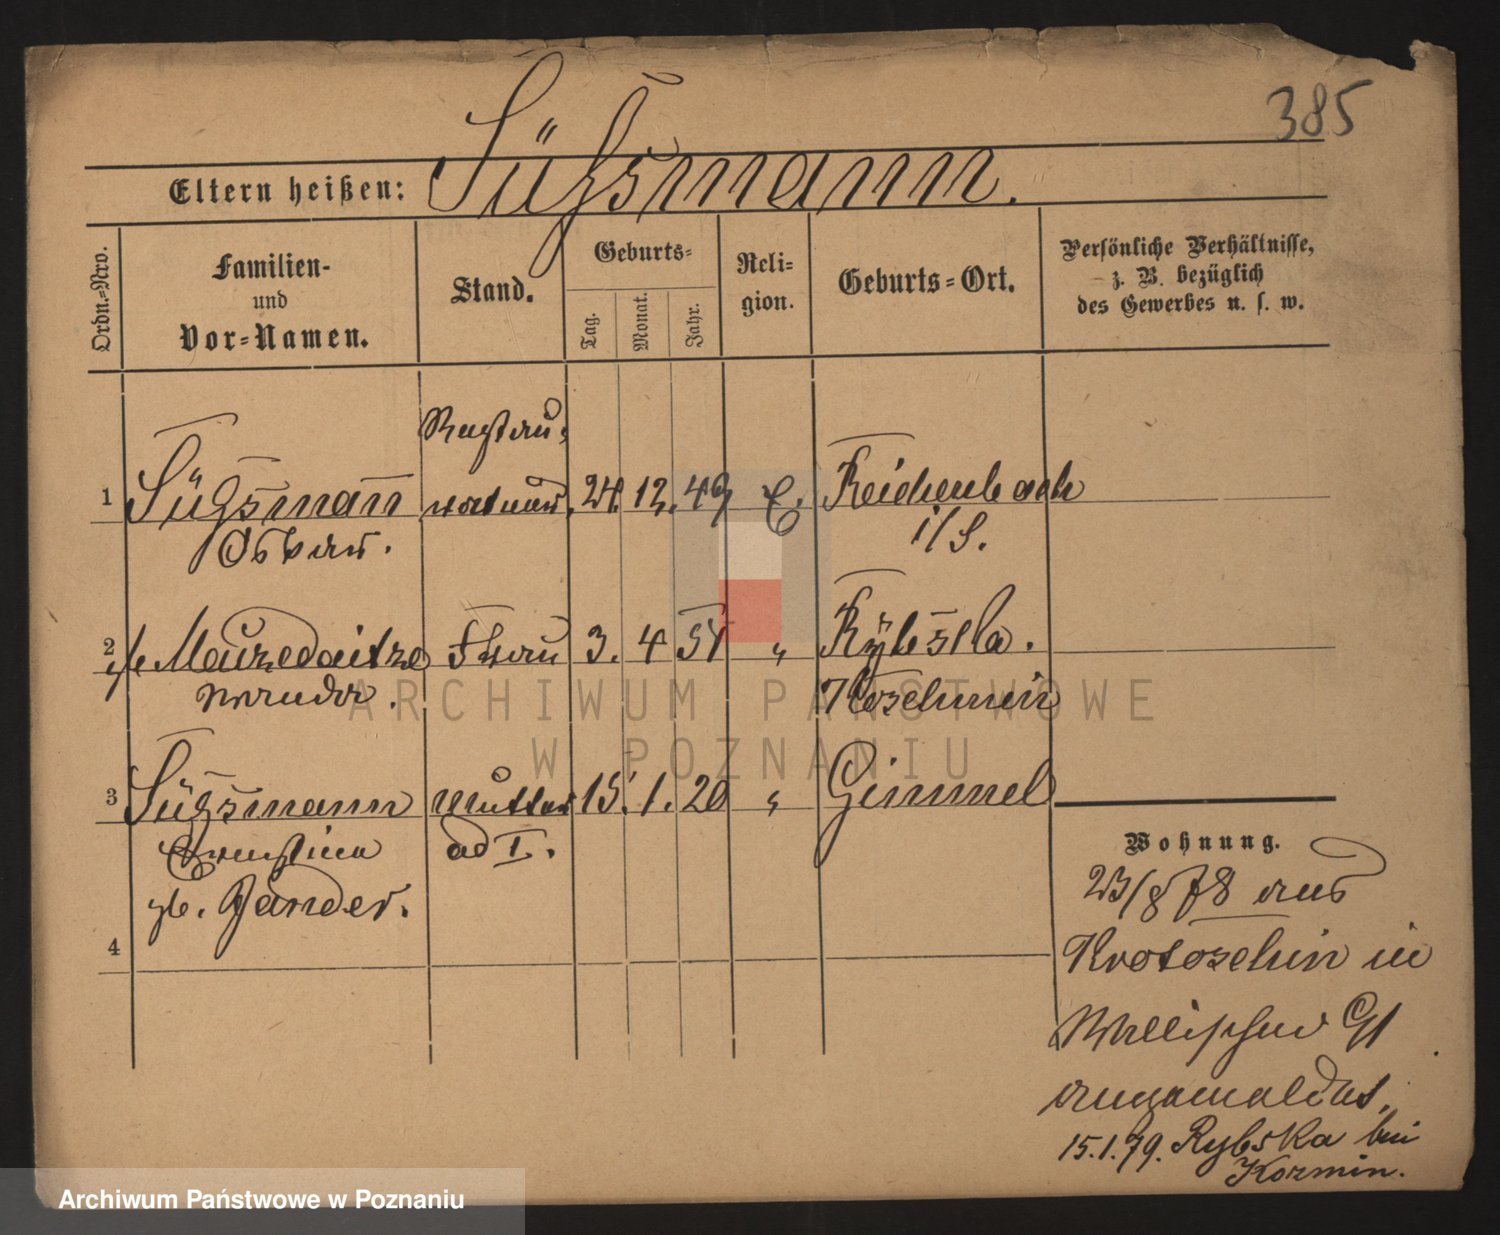 385
Eltern heißen: Süßsmann.
Ordn.-Nro.
Familien-
und
Vor-Namen.
Stand.
Geburts-
Tag.
Monat.
Jahr.
Reli-
gion.
Geburts-Ort.
Persönliche Verhältnisse,
z. B. bezüglich
des Gewerbes u. s. w.
Restau-
1 Süßsmann rateur. 24. 12. 49 E. Reichenbach
Oskar. i/S.
2 Frau 3. 4 51 " Rybska.
Koschmin
3 Süßsmann Mutter 15. 1. 20 " Gimmel
Ernestine ad I.
gb. Jander.
4
Wohnung.
23/8 78 aus
Krotoschin in
Wallischei 91
angemeldet,
15.1.79. Rybska bei
Kozmin.
ARCHIWUM PAŃSTWOWE
W POZNANIU
Archiwum Państwowe w Poznaniu